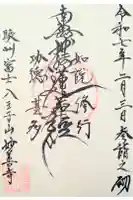 令和七年二月三日参詣之砌
如説修行
南無妙法蓮華経
功徳甚多
駿州富士 八王子山 妙善寺